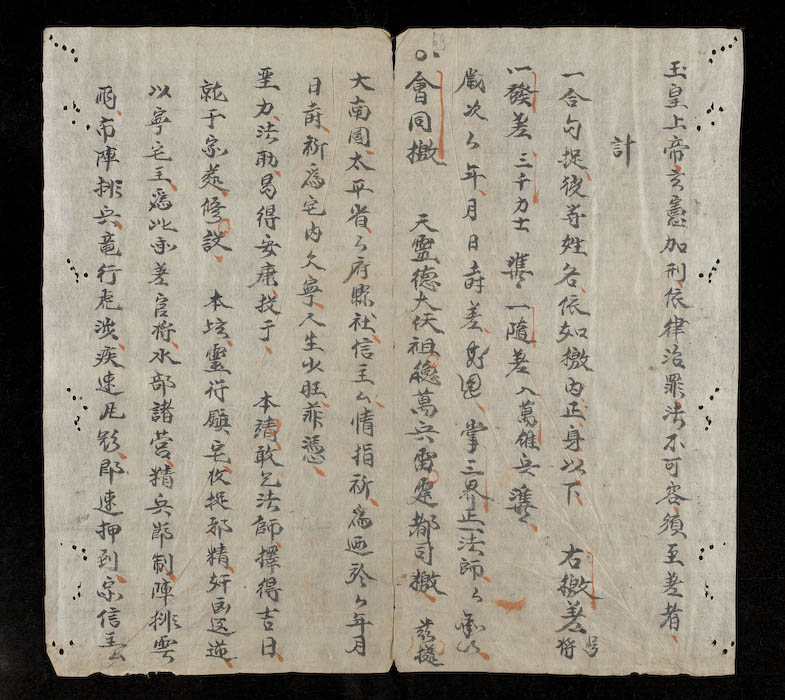 玉皇上帝玄憲加刑依律治罪法不可容須至差者
計
一合勾捉彼等姓名依如檄內正身以下 右檄差将 号
一發差三千力士 準 一隨差八萬雄兵準
歲次厶年月日時差 掌三界正法師厶承以
會同檄 天靈德大 祖德萬兵雷霆都司檄 茲據
大南國太平省厶府縣社信主厶情指祈為 於厶年月
日時祈為宅内欠寧人生少旺 憑
聖力法 曷得安康投于 本靖敢乞法師擇得吉日
就于家筵修設 本坛靈符鎮宅收捉邪精奸凶 並
以寧宅主為此 差官将水部諸营精兵 制陣排雲
雨布陣排兵竜行虎 疾速 即速押到宗信主厶